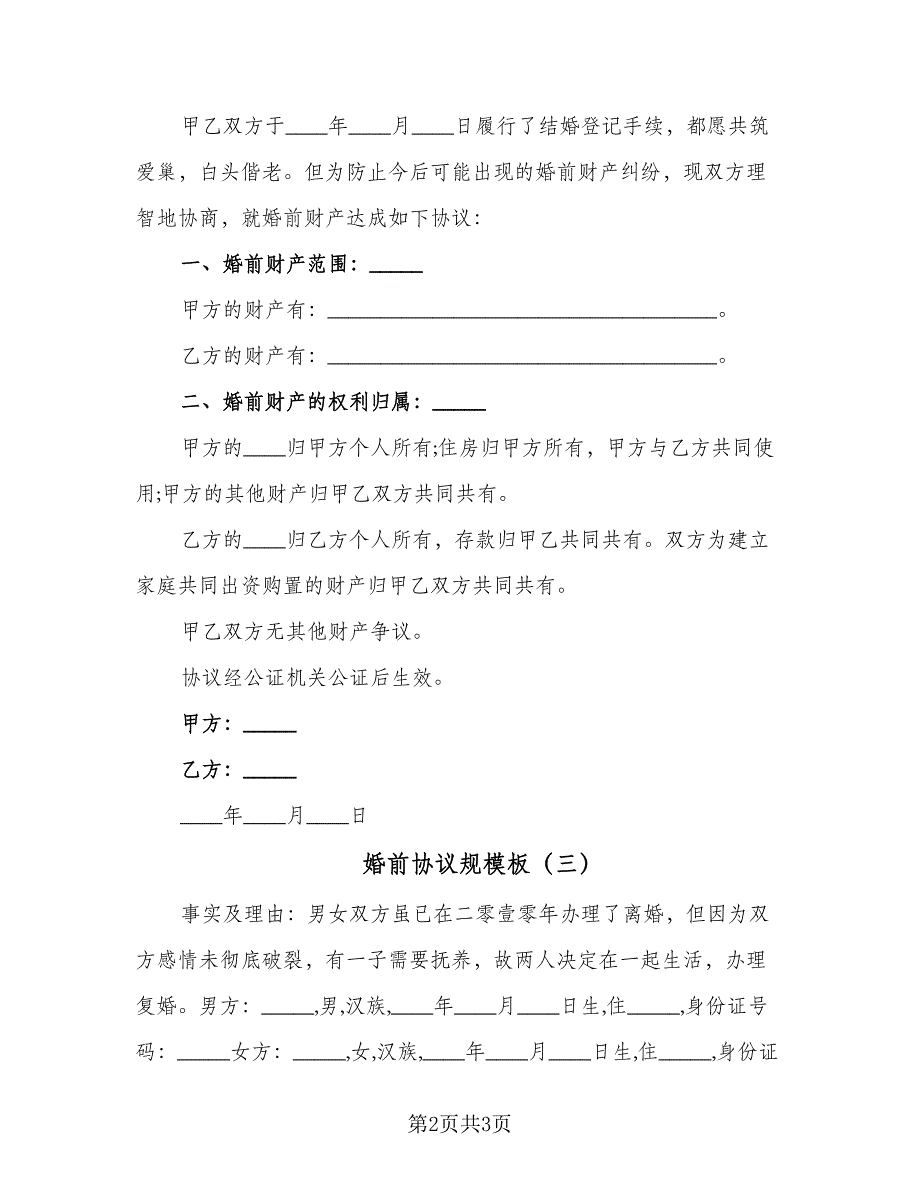 甲乙双方于____年____月____日履行了结婚登记手续，都愿共筑
爱巢，白头偕老。但为防止今后可能出现的婚前财产纠纷，现双方理
智地协商，就婚前财产达成如下协议：
一、婚前财产范围：_____
甲方的财产有：_____________________________________。
乙方的财产有：_____________________________________。
二、婚前财产的权利归属：_____
甲方的____归甲方个人所有;住房归甲方所有，甲方与乙方共同使
用;甲方的其他财产归甲乙双方共同共有。
乙方的____归乙方个人所有，存款归甲乙共同共有。双方为建立
家庭共同出资购置的财产归甲乙双方共同共有。
甲乙双方无其他财产争议。
协议经公证机关公证后生效。
甲方：_____
乙方：_____
____年____月____日
婚前协议规模板（三）
事实及理由：男女双方虽已在二零壹零年办理了离婚，但因为双
方感情未彻底破裂，有一子需要抚养，故两人决定在一起生活，办理
复婚。男方：_____,男,汉族,____年____月____日生,住_____,身份证号
码：_____女方：_____,女,汉族,____年____月____日生,住_____,身份证
第2页共3页